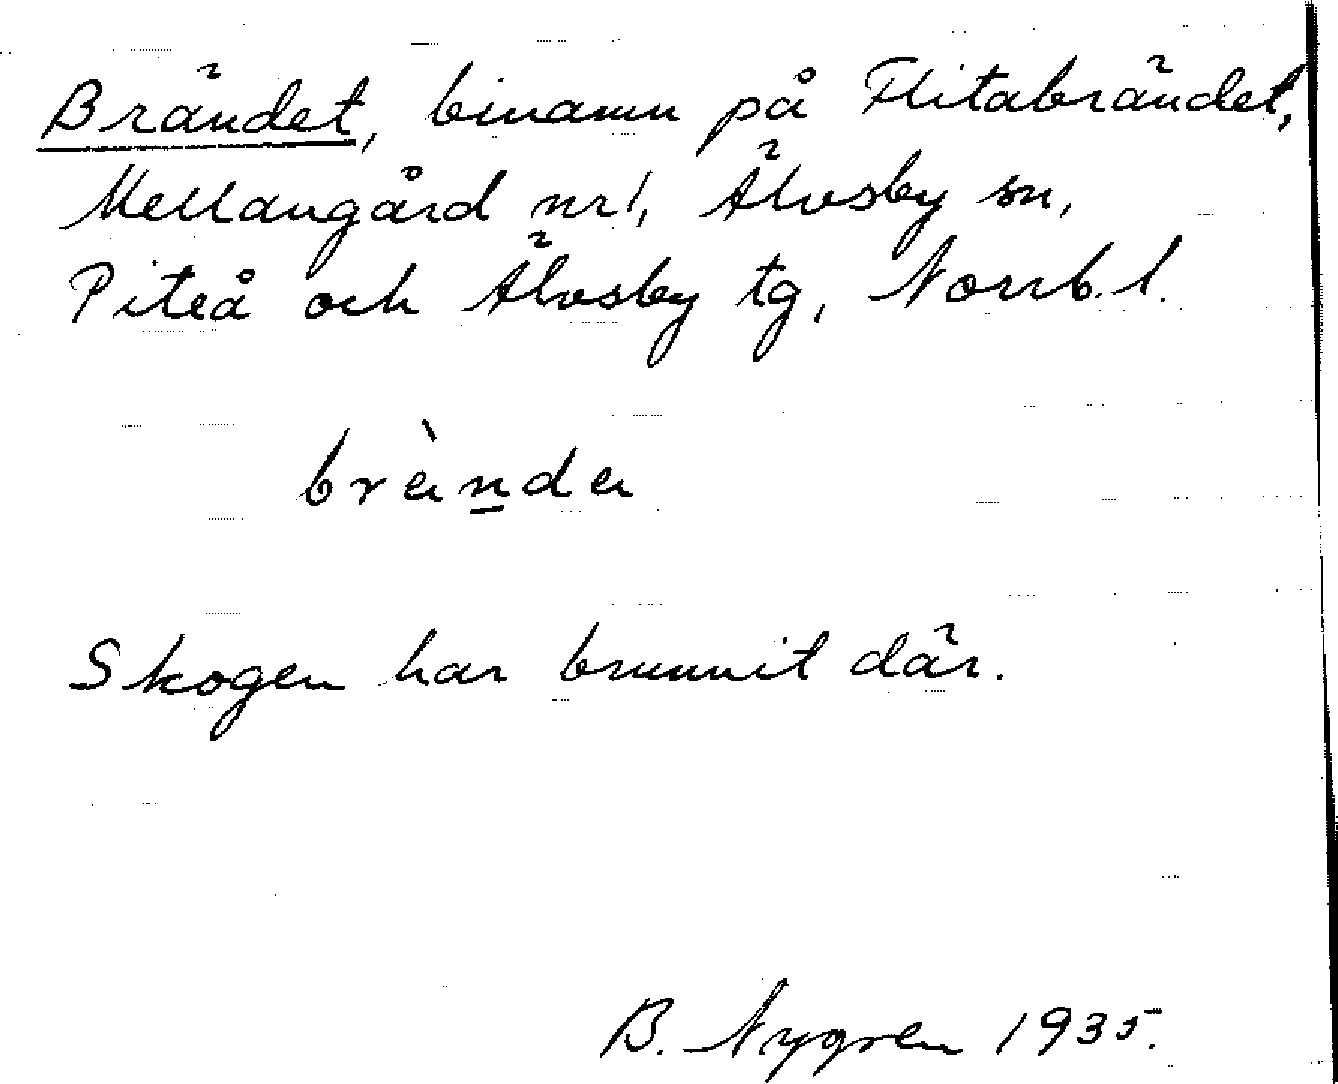 Brändet, binamn på Flitabrändet,
Mellangård nr 1, Älvsby sn,
Piteå och Älvsby tg, Norrb. l.
brä̀nda
Skogen har brunnit där.
B. Nygren 1935.